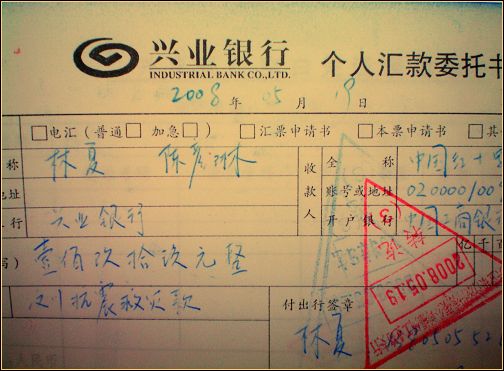 兴业银行 个人汇款委托书
INDUSTRIAL BANK CO.,LTD.
2008 年 05 月 19 日
□电汇(普通□ 加急□) □汇票申请书 □本票申请书 □其
称 林夏 收款人 全称 中国红十
地址 账号或地址 020000100
行 兴业银行 开户银行 中国工商银
写) 壹佰 拾 元整 亿千百
抗震救灾款 付出行签章
林夏
2008.05.19
人民币